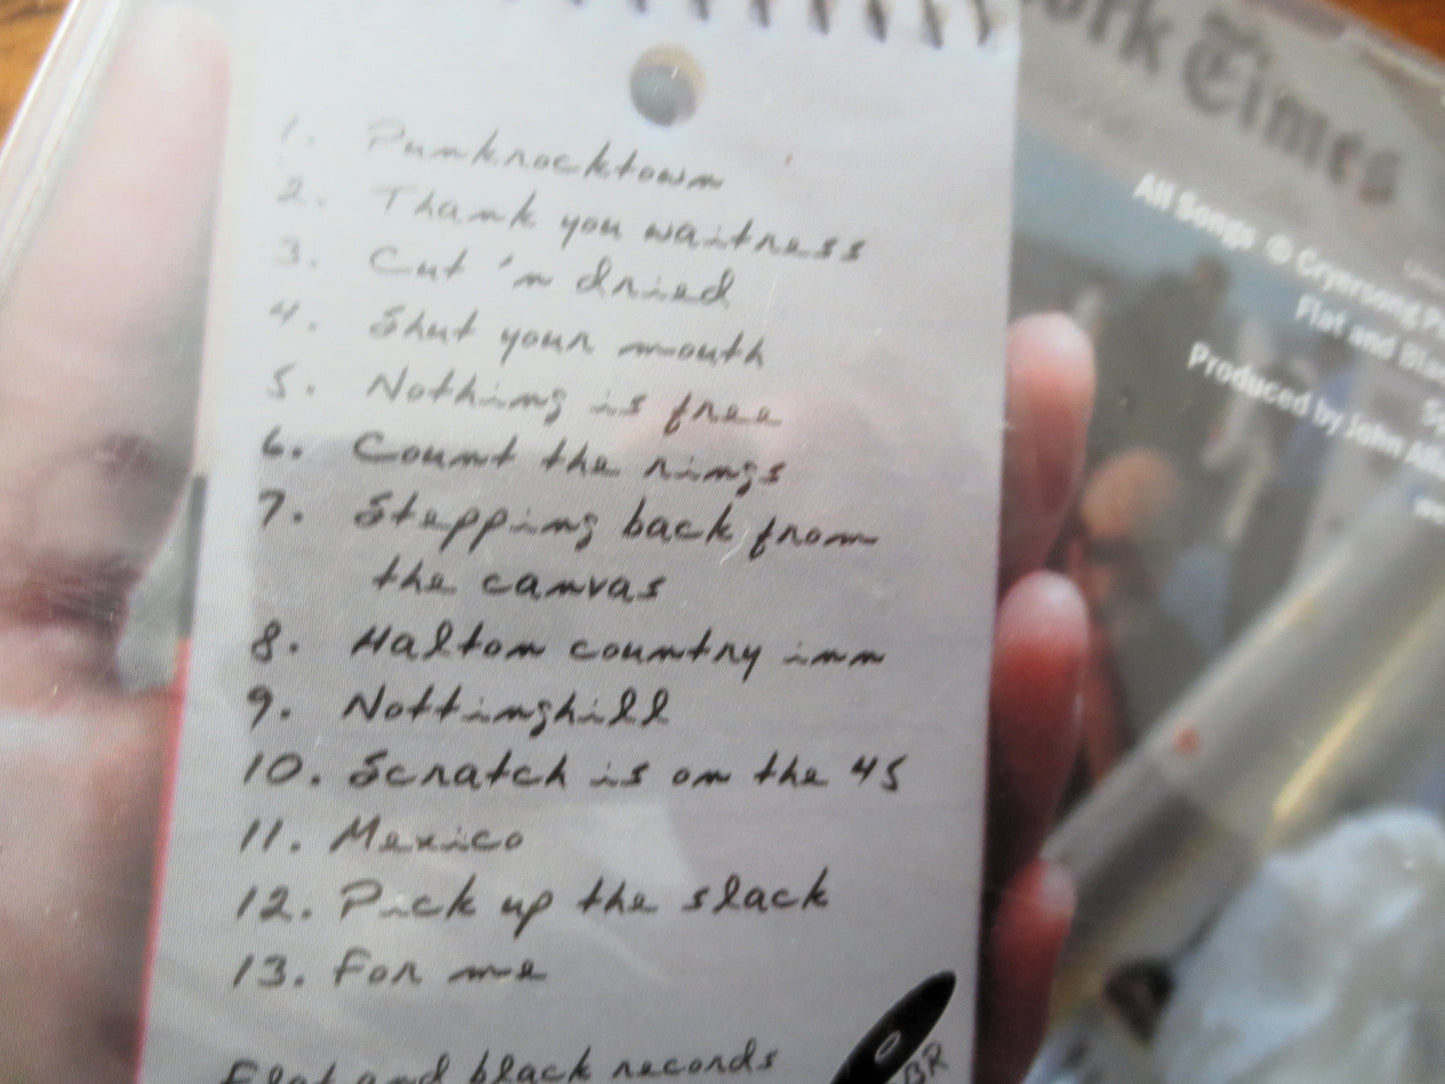 1. Punknocktown
2. Thank you waitress
3. Cut 'n dried
4. Shut your mouth
5. Nothing is free
6. Count the rings
7. Stepping back from
the canvas
8. Halton country inn
9. Nottinghill
10. Scratch is on the 45
11. Mexico
12. Pick up the slack
13. For me
Flat and black records
BR
ork Times
All Songs ℗ Cryersong
Flat and
Produced by John